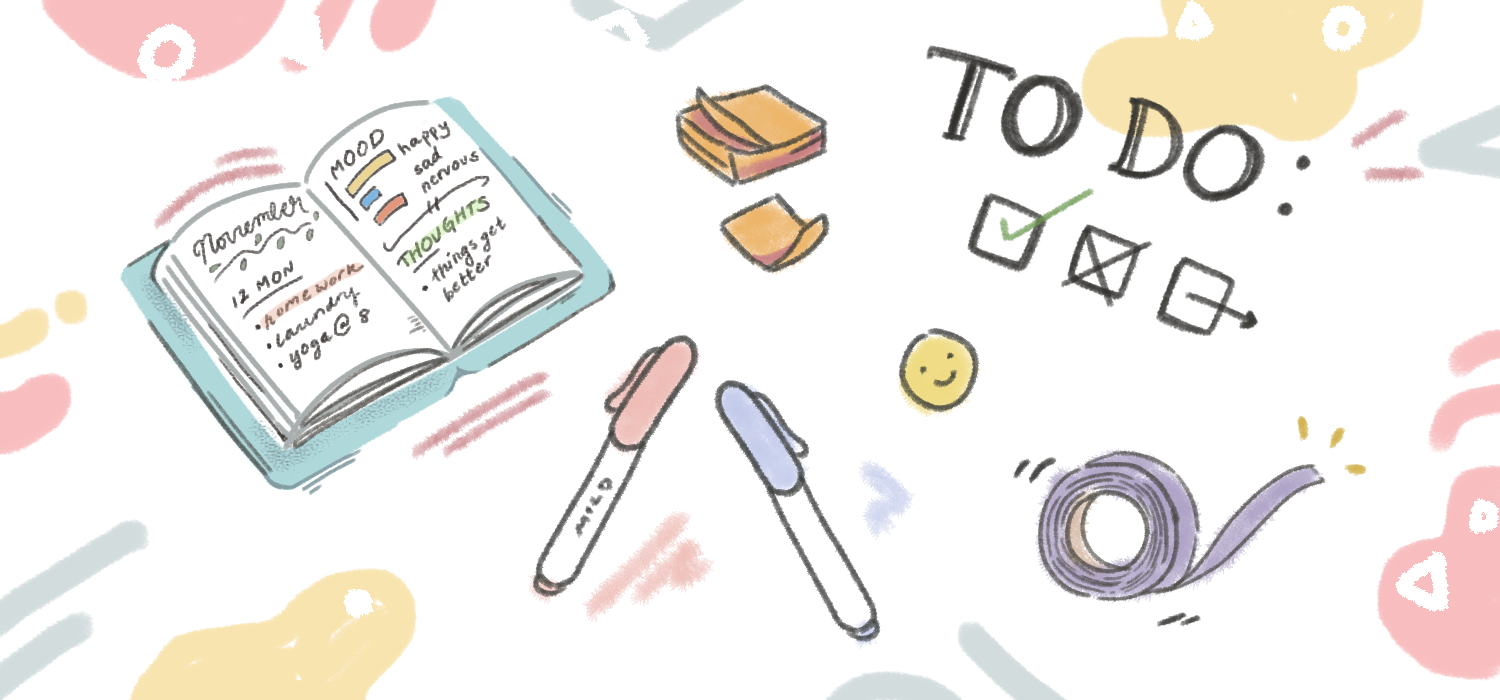 November
12 MON
• homework
• laundry
• yoga @ 8
MOOD
happy
sad
nervous
THOUGHTS
• things get
better
TO DO:
MILD